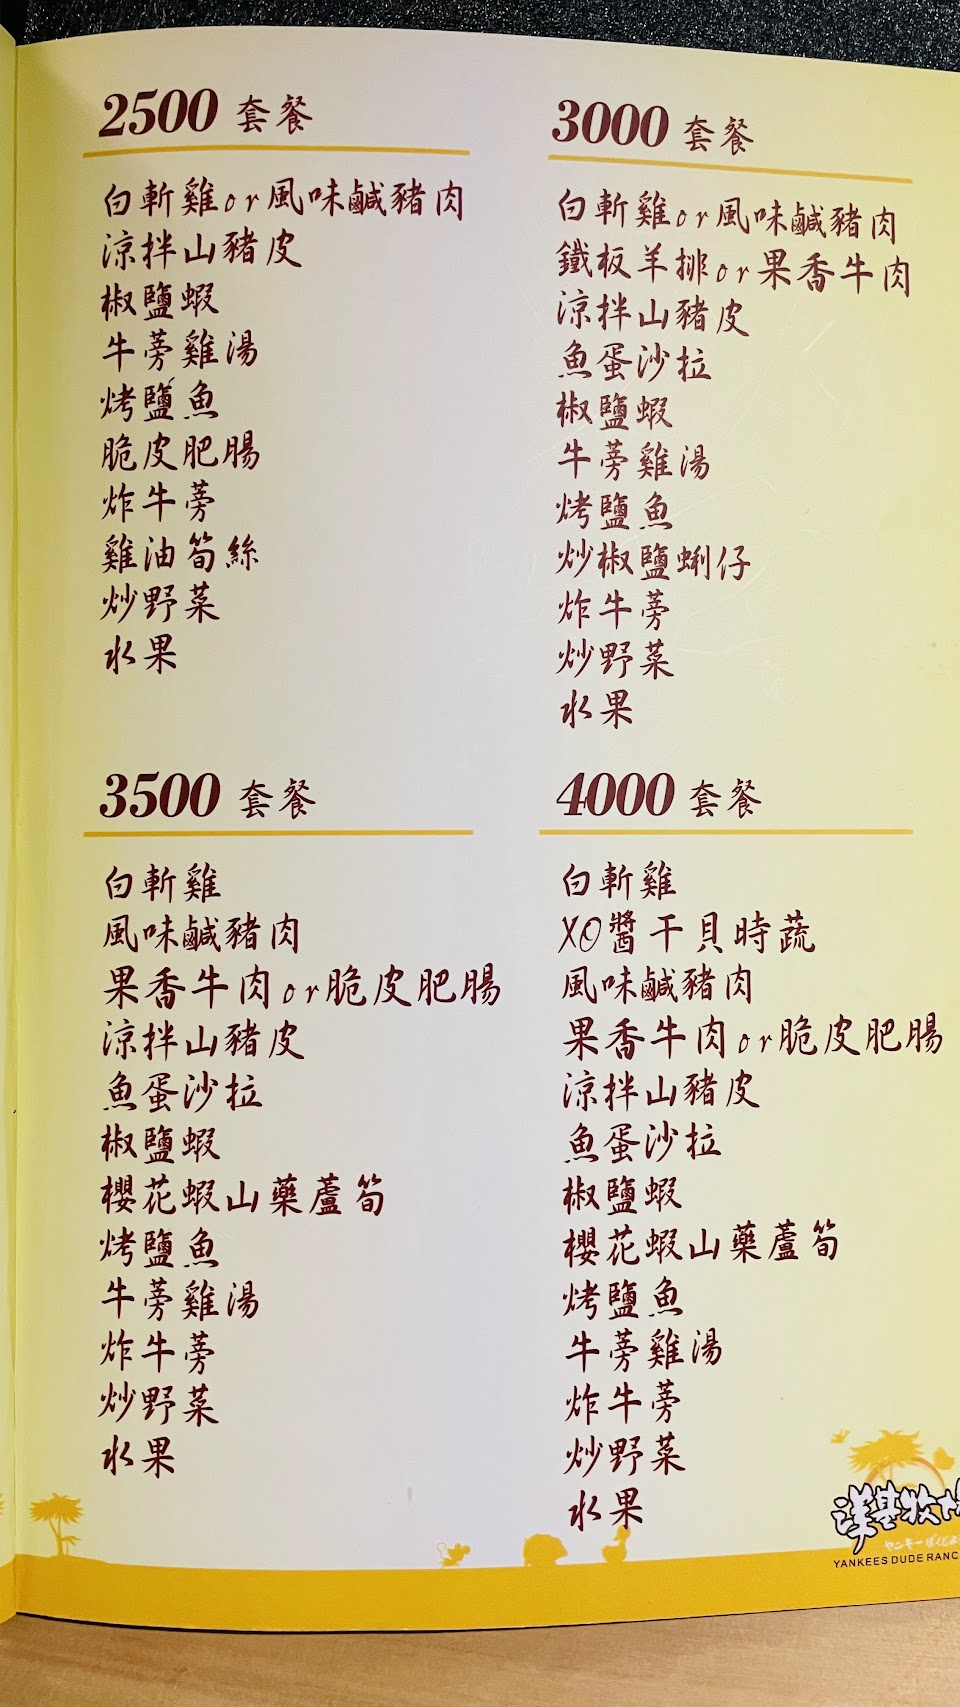 2500 套餐
白斬雞or風味鹹豬肉
涼拌山豬皮
椒鹽蝦
牛蒡雞湯
烤鹽魚
脆皮肥腸
炸牛蒡
雞油筍絲
炒野菜
水果
3000 套餐
白斬雞or風味鹹豬肉
鐵板羊排or果香牛肉
涼拌山豬皮
魚蛋沙拉
椒鹽蝦
牛蒡雞湯
烤鹽魚
炒椒鹽蜊仔
炸牛蒡
炒野菜
水果
3500 套餐
白斬雞
風味鹹豬肉
果香牛肉or脆皮肥腸
涼拌山豬皮
魚蛋沙拉
椒鹽蝦
櫻花蝦山藥蘆筍
烤鹽魚
牛蒡雞湯
炸牛蒡
炒野菜
水果
4000 套餐
白斬雞
XO醬干貝時蔬
風味鹹豬肉
果香牛肉or脆皮肥腸
涼拌山豬皮
魚蛋沙拉
椒鹽蝦
櫻花蝦山藥蘆筍
烤鹽魚
牛蒡雞湯
炸牛蒡
炒野菜
水果
洋基牧
ヤンキーぼくじょ
YANKEES DUDE RANC